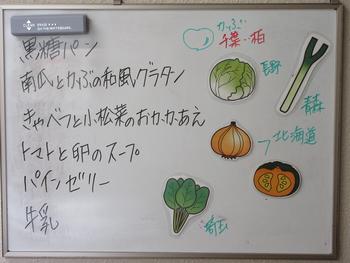 黒糖パン
南瓜とかぶの和風グラタン
きゃべつと小松菜のおかかあえ
トマトと卵のスープ
パインゼリー
牛乳
かぶ
千葉・柏
長野
青森
北海道
埼玉